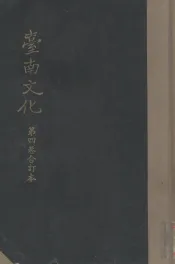 臺南文化
第四卷合訂本